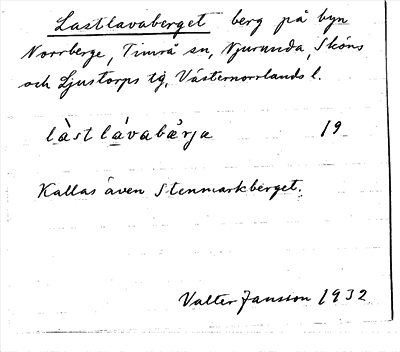 Lastlavaberget berg på byn
Norrberge, Timrå sn, Njurunda, Sköns
och Ljustorps tg, Västernorrlands l.
làstlávabæ̀rja 19
Kallas även Stenmarkberget.
Valter Jansson 1932